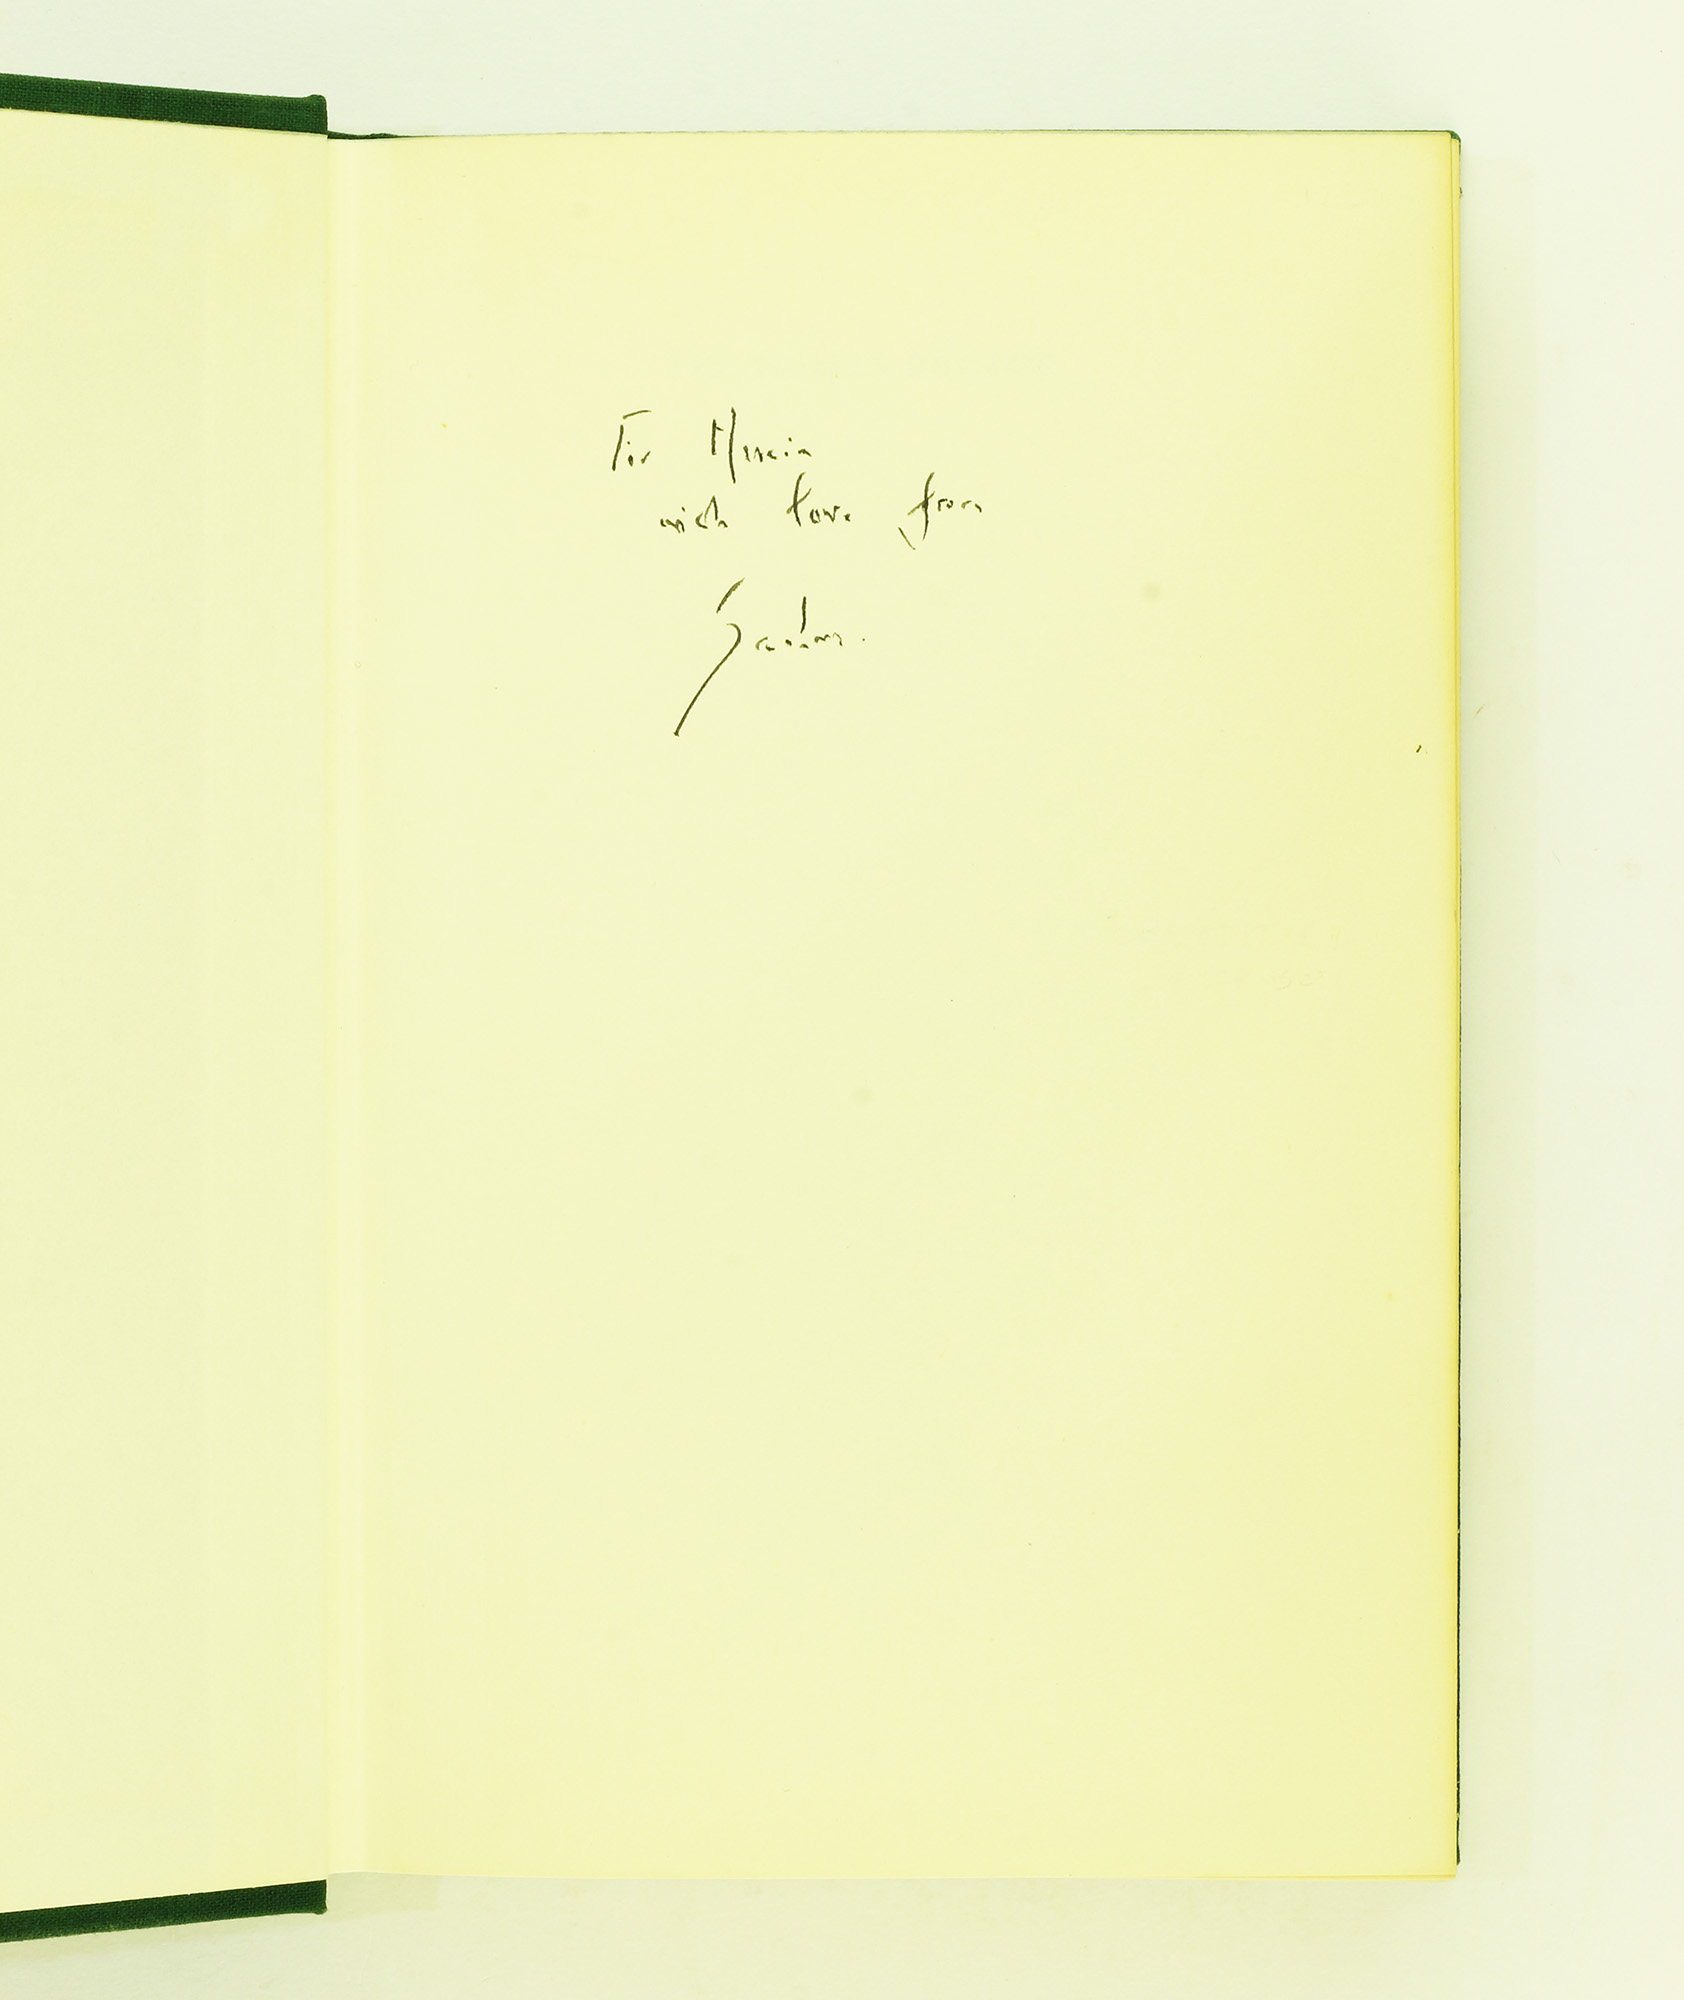 For Marcia
with love from
Graham.